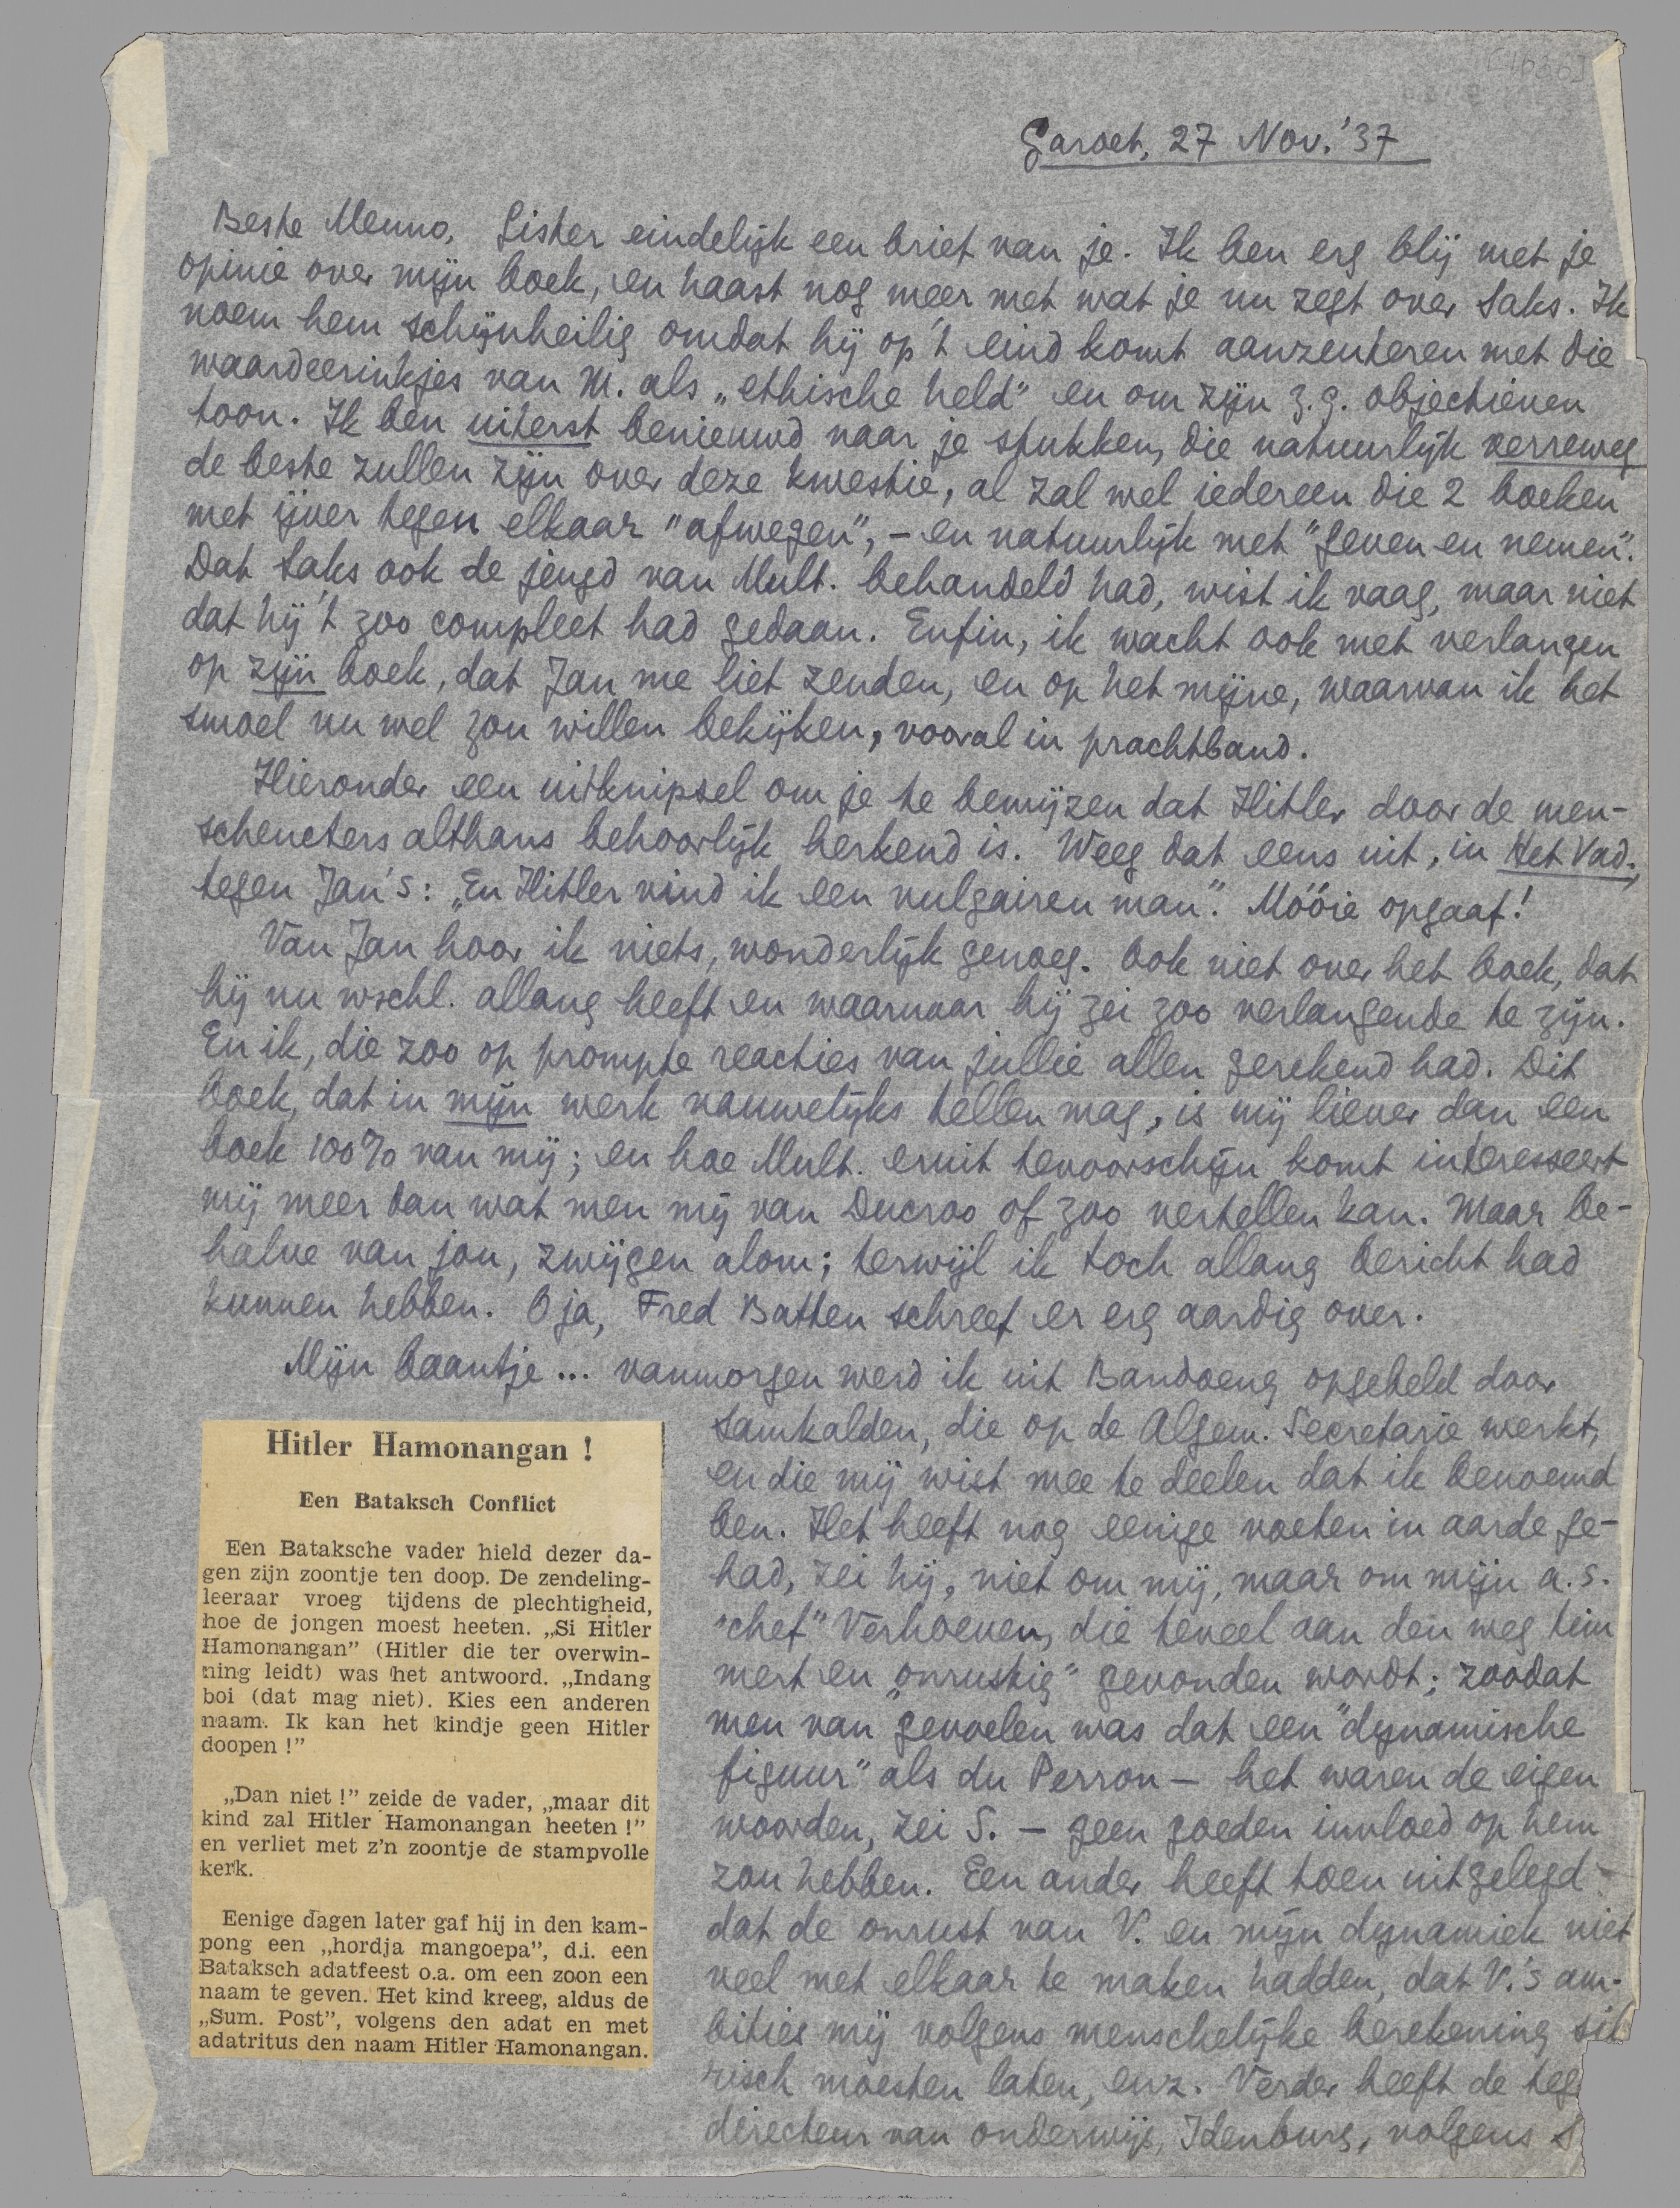 [1030]
Garoet, 27 Nov. '37
Beste Menno, Gister eindelijk een brief van je. Ik ben erg blij met je
opinie over mijn boek, en haast nog meer met wat je nu zegt over Saks. Ik
noem hem schijnheilig omdat hij op 't eind komt aanzenteren met die
waardeerinkjes van M. als „ethische held" en om zijn z.g. objectieven
toon. Ik ben uiterst benieuwd naar je stukken, die natuurlijk verreweg
de beste zullen zijn over deze kwestie, al zal wel iedereen die 2 boeken
met ijver tegen elkaar "afwegen", – en natuurlijk met "geven en nemen".
Dat Saks ook de jeugd van Mult. behandeld had, wist ik vaag, maar niet
dat hij 't zoo compleet had gedaan. Enfin, ik wacht ook met verlangen
op zijn boek, dat Jan me liet zenden, en op het mijne, waarvan ik het
smoel nu wel zou willen bekijken, vooral in prachtband.
Hieronder een uitknipsel om je te bewijzen dat Hitler door de men-
scheneters althans behoorlijk herkend is. Weeg dat eens uit, in Het Vad.,
tegen Jan's: „En Hitler vind ik een vulgairen man". Móóie opgaaf!
Van Jan hoor ik niets, wonderlijk genoeg. Ook niet over het boek, dat
hij nu wschl. allang heeft en waarnaar hij zei zoo verlangende te zijn.
En ik, die zoo op prompte reacties van jullie allen gerekend had. Dit
boek, dat in mijn werk nauwelijks tellen mag, is mij liever dan een
boek 100% van mij; en hoe Mult. eruit tevoorschijn komt interesseert
mij meer dan wat men mij van Ducroo of zoo vertellen kan. Maar be-
halve van jou, zwijgen alom; terwijl ik toch allang bericht had
kunnen hebben. O ja, Fred Batten schreef er erg aardig over.
Mijn baantje... vanmorgen werd ik uit Bandoeng opgebeld door
Samkalden, die op de Algem. Secretarie werkt,
en die mij wist mee te deelen dat ik benoemd
ben. Het heeft nog eenige voeten in aarde ge-
had, zei hij, niet om mij, maar om mijn a.s.
"chef" Verhoeven, die teveel aan den weg tim
mert en „onrustig" gevonden wordt; zoodat
men van gevoelen was dat een "dynamische
figuur" als du Perron – het waren de eigen
woorden, zei S. – geen goeden invloed op hem
zou hebben. Een ander heeft toen uitgelegd
dat de onrust van V. en mijn dynamiek niet
veel met elkaar te maken hadden, dat V.'s am-
bities mij volgens menschelijke berekening
risch moesten laten, enz. Verder heeft de
directeur van onderwijs, Idenburg, volgens S
Hitler Hamonangan !
Een Bataksch Conflict
Een Bataksche vader hield dezer da-
gen zijn zoontje ten doop. De zendeling-
leeraar vroeg tijdens de plechtigheid,
hoe de jongen moest heeten. „Si Hitler
Hamonangan" (Hitler die ter overwin-
ning leidt) was het antwoord. „Indang
boi (dat mag niet). Kies een anderen
naam. Ik kan het kindje geen Hitler
doopen !"
„Dan niet !" zeide de vader, „maar dit
kind zal Hitler Hamonangan heeten !"
en verliet met z'n zoontje de stampvolle
kerk.
Eenige dagen later gaf hij in den kam-
pong een „hordja mangoepa", d.i. een
Bataksch adatfeest o.a. om een zoon een
naam te geven. Het kind kreeg, aldus de
„Sum. Post", volgens den adat en met
adatritus den naam Hitler Hamonangan.